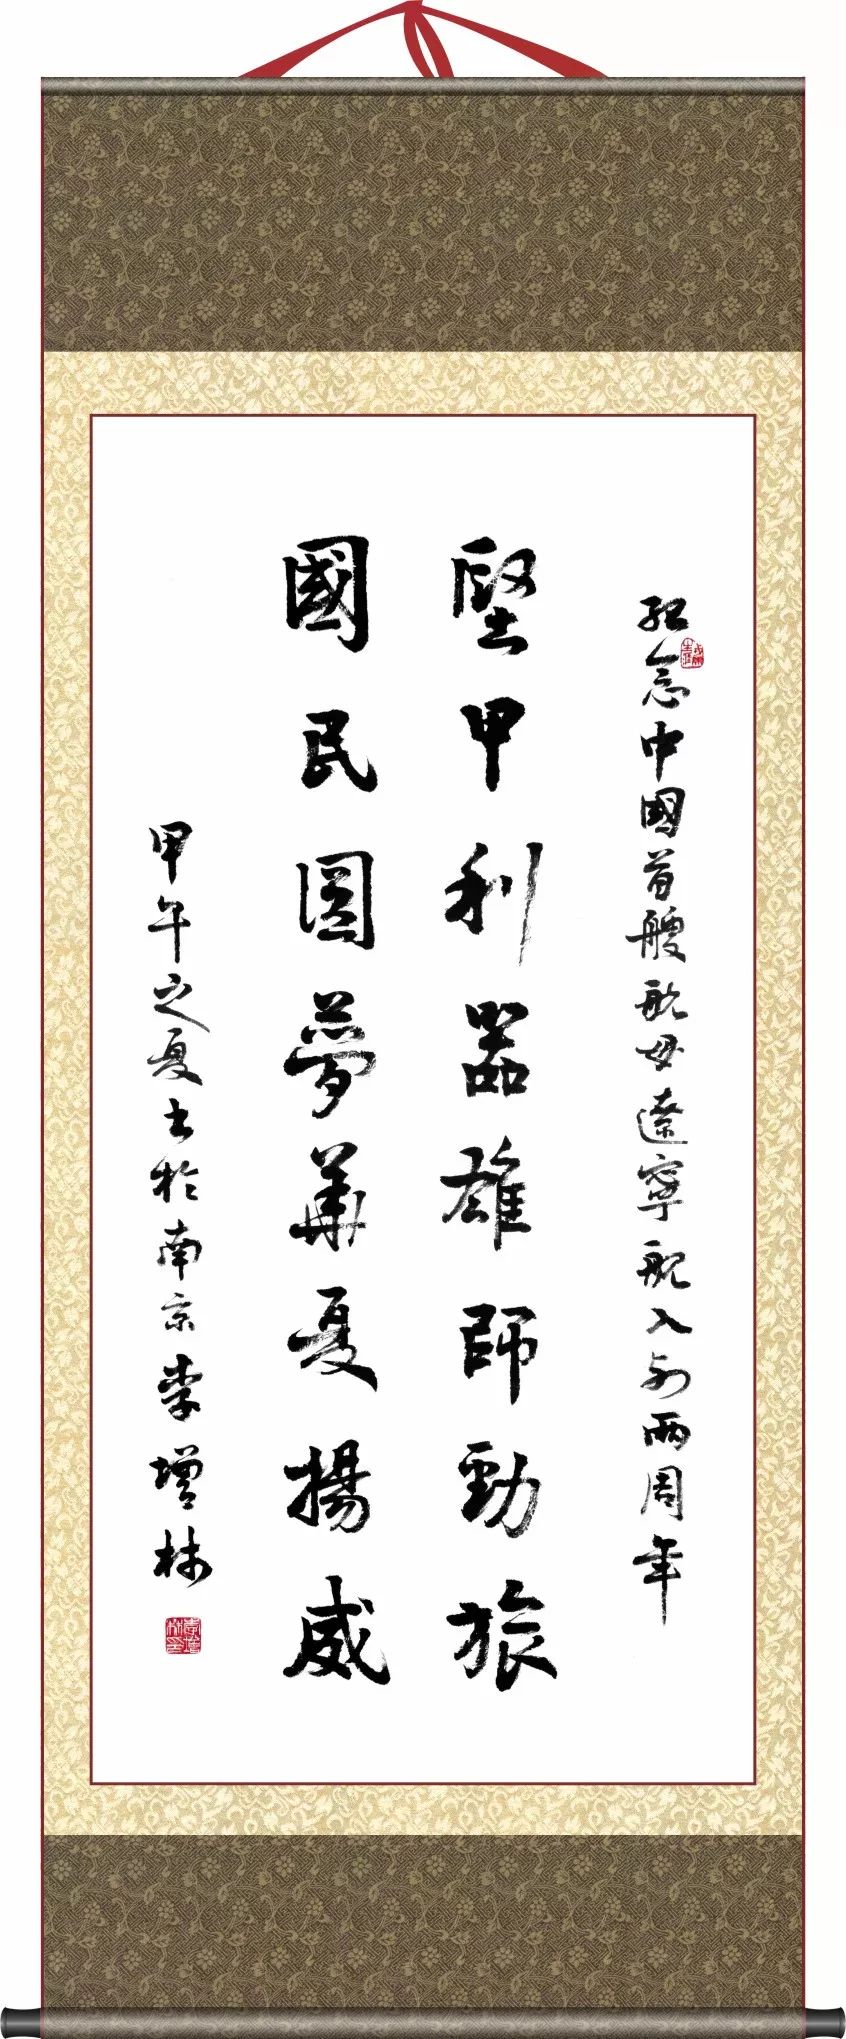 紀念中國首艘航母遼寧艦入列兩周年
堅甲利器雄師勁旅
國民圓夢華夏揚威
甲午之夏書於南京李增林